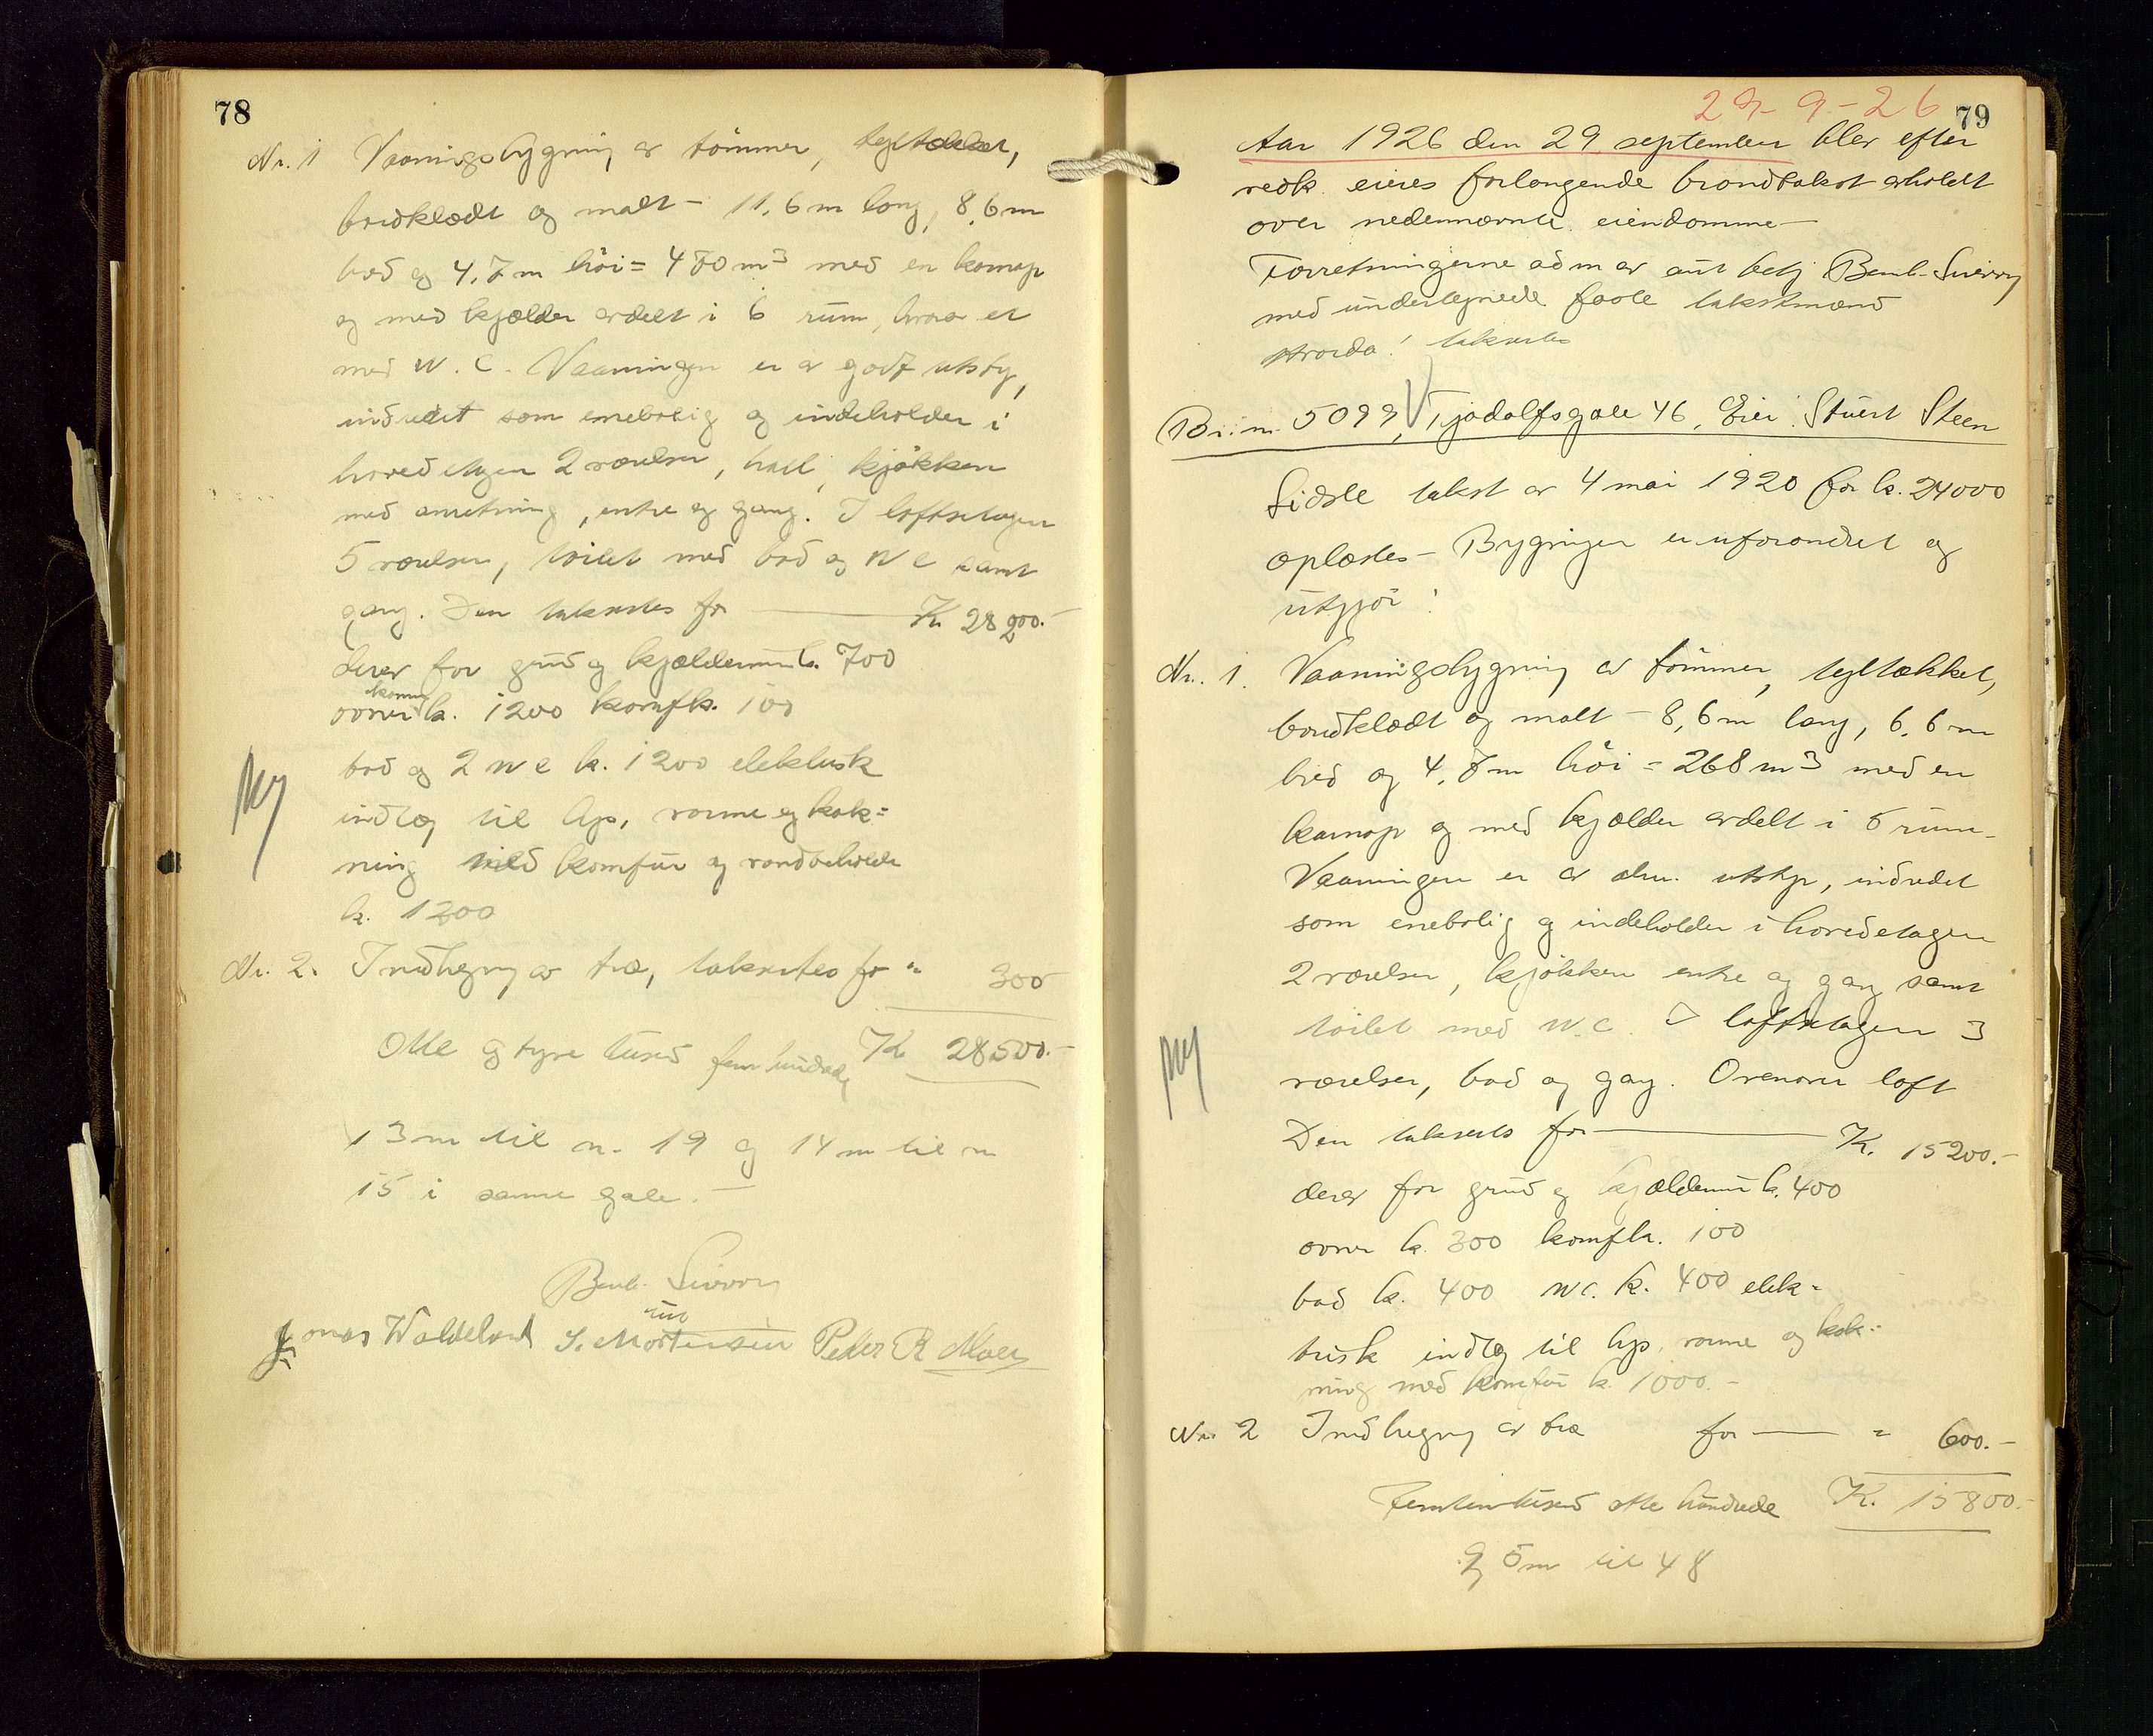 78
Nr. 1 Vaaningsbygning av tömmer, tegltækket,
bordklædt og malt - 11,6 m lang, 8,6 m
bred og 4,7 m höi = 470 m3 med en karnap
og med kjælder avdelt i 6 rum, hvorav et
med W.C. Vaaningen er av godt utstyr,
indredet som enebolig og indeholder i
hovedetagen 2 værelser, hall, kjökken
med anretning, entre og gang. I loftsetagen
5 værelser, toilet med bad og W C samt
gang. Den takseres for K. 28200.-
derav for grund og kjældermur k. 700
ovner k. 1200 komf k. 100
bad og 2 W C k. 1200 elektrisk
indlæg til lys, varme og kok=
ning med komfur og vandbeholder
k. 1200
Ny
Nr. 2. Indhegning av træ, takseres for " 300
Otte og tyve tusend fem hundrede K 28500.-
13 m til nr. 19 og 14 m til nr
15 i samme gate.-
Bernh. Siverny
Jonas Waldeland S. Mortensen Peder R Moen
79
29-9-26
Aar 1926 den 29 september blev efter
vedk. eieres forlangende brandtakst avholdt
over nedennævnte eiendomme-
Forretningerne adm av aut betj Bernh. Siverny
med undertegnede faste takstmænd
Hvorda! takseres
Br.nr. 5099, Tjodolfsgate 46, Eier: Stuert Steen
Sidste takst av 4 mai 1920 for k. 24000
oplæstes- Bygningen er uforandret og
utgjör:
Nr. 1. Vaaningsbygning av tömmer, tegltækket,
bordklædt og malt - 8,6 m lang, 6,6 m
bred og 4,7 m höi = 268 m3 med en
karnap og med kjælder avdelt i 5 rum-
Vaaningen er av alm. utstyr, indredet
som enebolig og indeholder i hovedetagen
2 værelser, kjökken entre og gang samt
toilet med W.C. I loftsetagen 3
værelser, bad og gang. Ovenover loft
Den takseres for K. 15200.-
derav for grund og kjældermur k. 400
ovner k. 300 komf k. 100
bad k. 400 W.C. k. 400 elek=
trisk indlæg til lys, varme og kok=
ning med komfur k. 1000.-
Ny
Nr. 2 Indhegning av træ for " 600.-
Femten tusend otte hundrede K. 15800.-
Og 5 m til 48